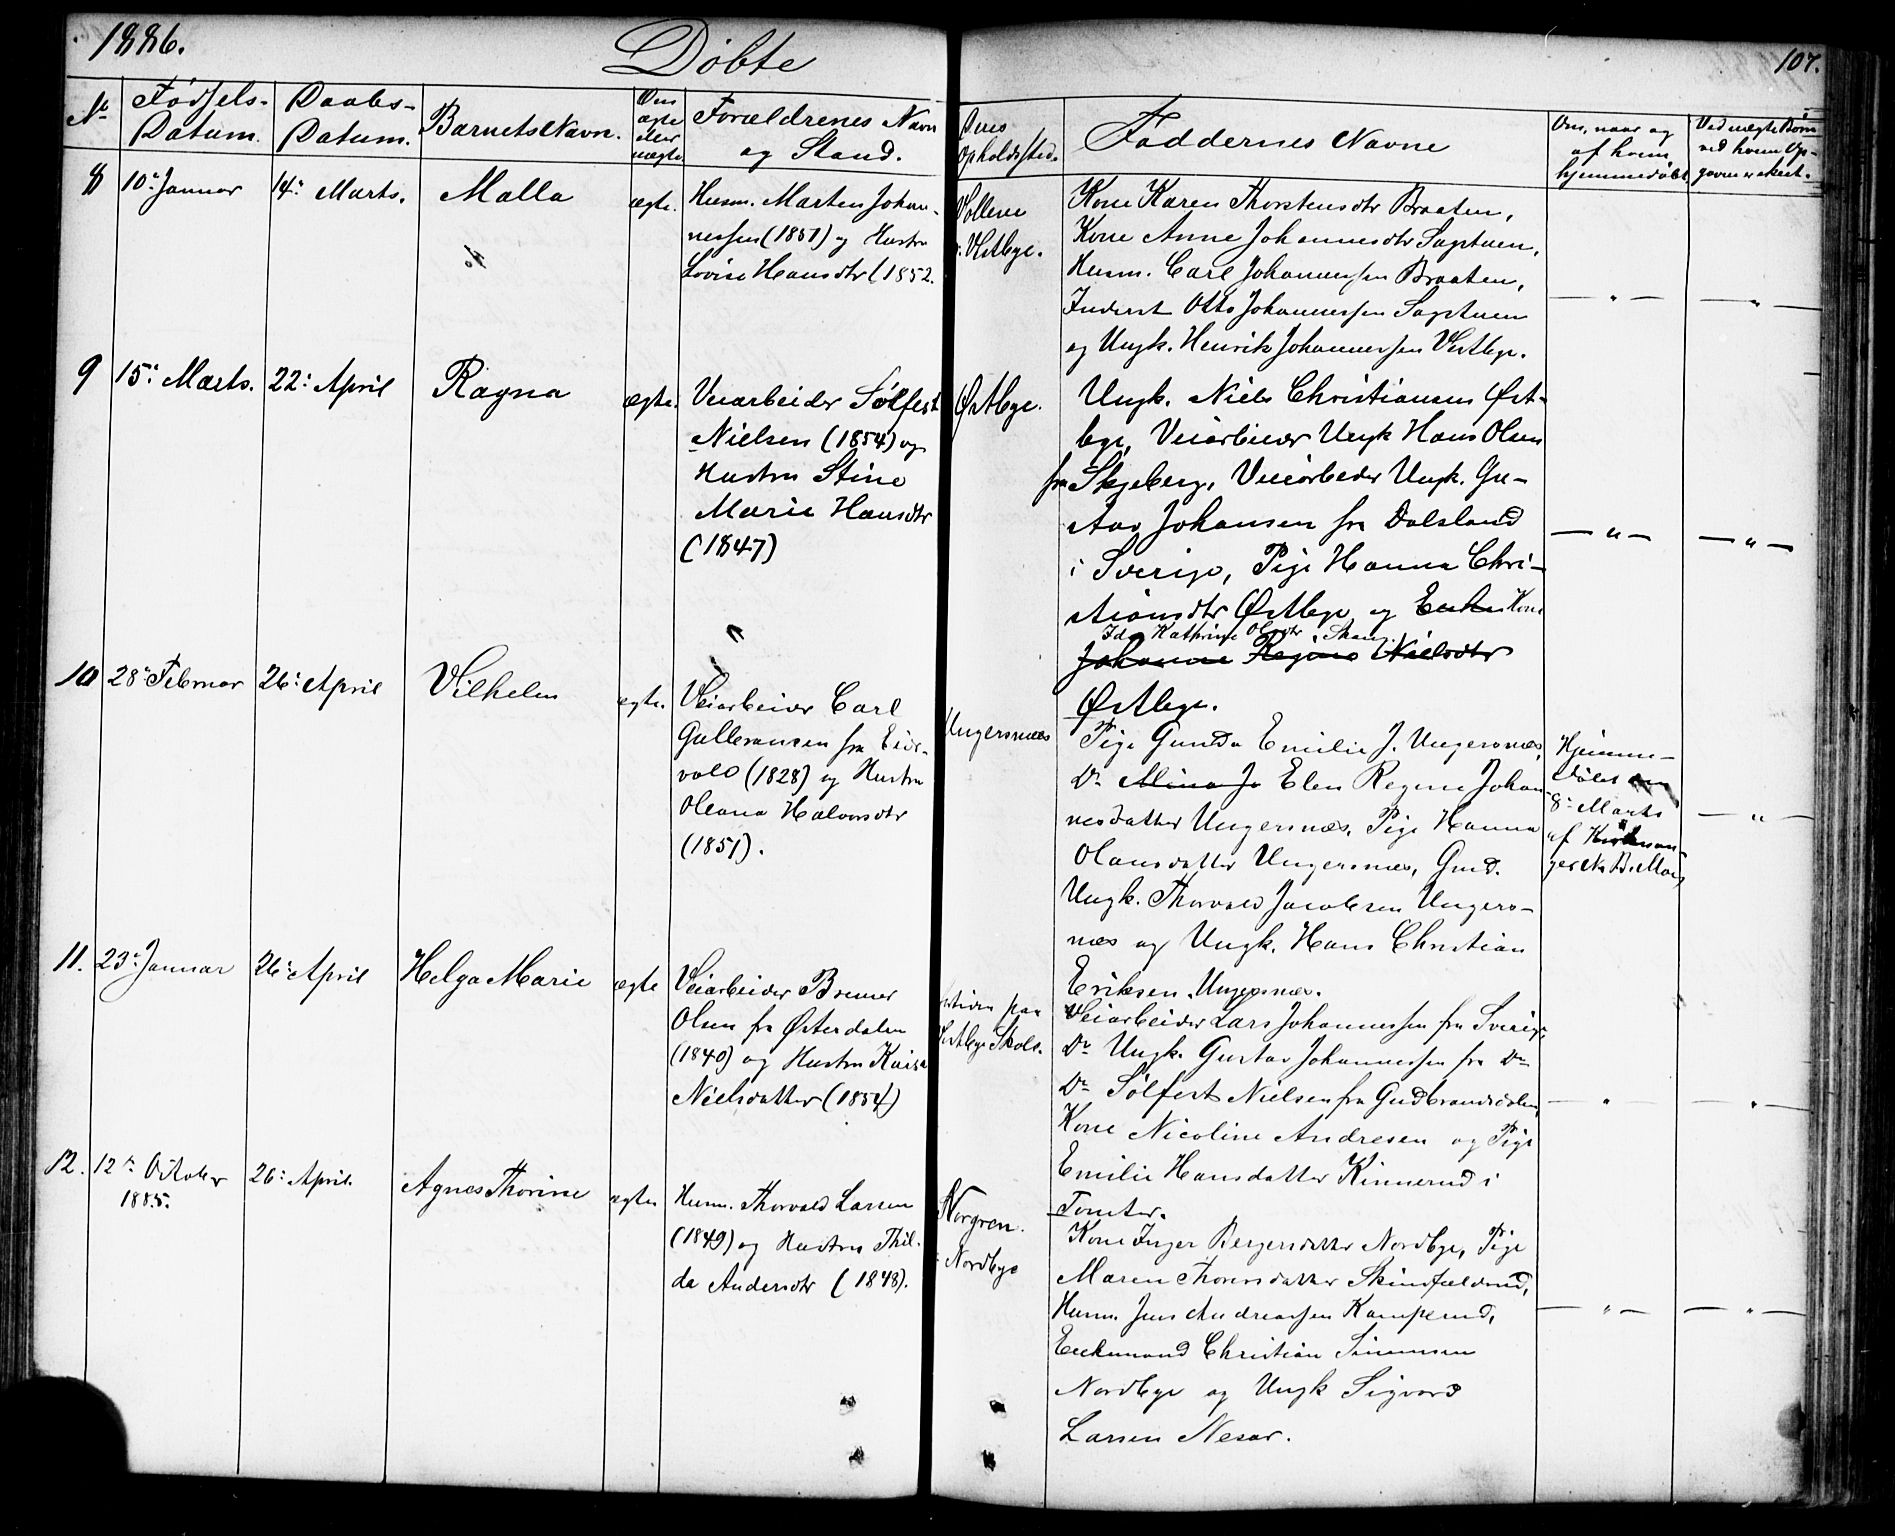 1886.
Døbte
107.
No
Fødsels-
Datum.
Daabs-
Datum.
Barnets Navn.
Om
ægte
eller
uægte
Forældrenes Navn
og Stand.
Deres
Opholdssted.
Faddernes Navne
Om, naar og
af hvem
hjemmedøbt
Ved uægte Børn
ved hvem Op-
gaven er skeet.
8
10de Januar
14de Marts.
Malla
ægte.
Husm. Marten Johan-
nessen (1851) og Hustru
Lovise Hansdtr (1852.
Vollene
v. Vestbye.
Kone Karen Thorstensdtr Braaten,
Kone Anne Johannesdtr Sagstuen,
Husm. Carl Johannessen Braaten,
Inderst Otto Johannessen Sagstuen
og Ungk. Henrik Johannessen Vestbye.
— " —
— " —
9
15de Marts.
22de April
Ragna
ægte.
Veiarbeider Sølfest
Nielsen (1854) og
Hustru Stine
Marie Hansdtr
(1847)
Østbye.
Ungk. Niels Christiansen Øst-
bye, Veiarbeider Ungk Hans Olsen
fra Skjeberg, Veiarbeider Ungk. Gu-
stav Johansen fra Dalsland
i Sverige, Pige Hanna Chri-
stiansdtr Østbye og Enke Kone
Ida Kathrine Olsdtr Skaug.
Johanne Regine Nielsdtr
Østbye.
— " —
— " —
10
28de Februar
26de April
Vilhelm
ægte.
Veiarbeider Carl
Gulbransen fra Eids-
vold (1828) og Hustru
Oleana Halvorsdtr
(1851).
Ungersnæs
Pige Gunda Emilie J. Ungersnæs,
Do Mina J. Elen Regine Johan
nesdatter Ungersnæs, Pige Hanna
Olausdatter Ungersnæs, Gmd.
Ungk. Thorvald Jacobsen Ungers-
næs og Ungk. Hans Christian
Eriksen Ungersnæs.
Hjemme-
døbt
8de Marts
af Kirkesan-
ger
— " —
11.
23de Januar
26de April
Helga Marie
ægte
Veiarbeider Bremer
Olsen fra Østerdalen
(1840) og Hustru Kaisa
Nielsdatter (1854)
fortiden paa
Vestbye Skole.
Veiarbeider Lars Johannessen fra Sverige,
Do Ungk. Gustav Johannessen fra Do
Do Sølfest Nielsen fra Gudbrandsdalen,
Kone Nicoline Andresen og Pige
Emilie Hansdatter Kinnerud i
Tomter.
— " —
— " —
12.
12te October
1885.
26de April
Agnes Thorine
ægte
Husm. Thorvald Larsen
(1849) og Hustru Thil-
da Andersdtr (1848).
Norgren
i Nordbye
Kone Inger Bergersdatter Nordbye, Pige
Maren Thorersdatter Skindfælderud,
Husm. Jens Andreassen Kamperud,
Enkemand Christian Simensen
Nordbye og Ungk Sigvard
Larsen Nesar.
— " —
— " —